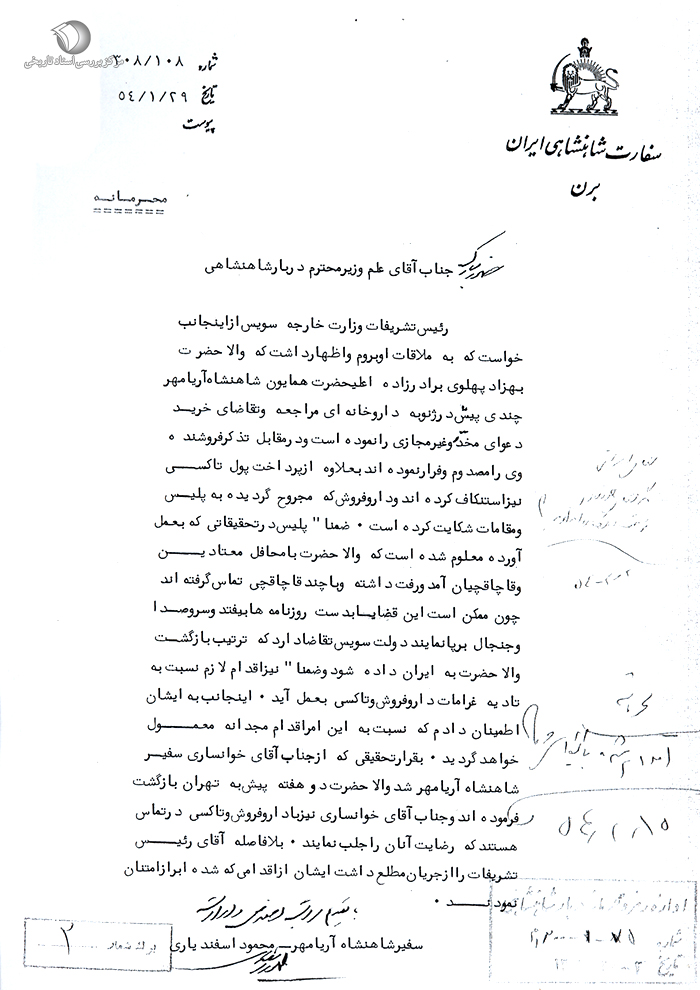 مرکز بررسی اسناد تاریخی
شماره ۳۰۸/۱۰۸
تاریخ ۵۴/۱/۲۹
پیوست
سفارت شاهنشاهی ایران
برن
محرمانه
جناب آقای علم وزیر محترم دربار شاهنشاهی
رئیس تشریفات وزارت خارجه سویس از اینجانب
خواست که به ملاقات او بروم و اظهار داشت که والاحضرت
بهزاد پهلوی برادرزاده اعلیحضرت همایون شاهنشاه آریامهر
چندی پیش در ژنو به داروخانه ای مراجعه و تقاضای خرید
دعوای مخدر و غیرمجازی را نموده است و در مقابل تذکر فروشنده
وی را مصدوم و فرار نموده اند بعلاوه از پرداخت پول تاکسی
نیز استنکاف کرده اند و داروفروش که مجروح گردیده به پلیس
و مقامات شکایت کرده است ۰ ضمنا" پلیس در تحقیقاتی که بعمل
آورده معلوم شده است که والاحضرت با محافل معتادین
و قاچاقچیان آمد و رفت داشته و با چند قاچاقچی تماس گرفته اند
چون ممکن است این قضایا بدست روزنامه ها بیفتد و سر و صدا
و جنجال برپا نمایند دولت سویس تقاضا دارد که ترتیب بازگشت
والاحضرت به ایران داده شود و ضمنا" نیز اقدام لازم نسبت به
تادیه غرامات داروفروش و تاکسی بعمل آید ۰ اینجانب به ایشان
اطمینان دادم که نسبت به این امر اقدام مجدانه معمول
خواهد گردید ۰ بقرار تحقیقی که از جناب آقای خوانساری سفیر
شاهنشاه آریامهر شد والاحضرت دو هفته پیش به تهران بازگشت
فرموده اند و جناب آقای خوانساری نیز با داروفروش و تاکسی در تماس
هستند که رضایت آنان را جلب نمایند ۰ بلافاصله آقای رئیس
تشریفات را از جریان مطلع داشت ایشان از اقدامی که شده ابراز امتنان
نمودند ۰
سفیر شاهنشاه آریامهر - محمود اسفندیاری
برگ شمار ۲